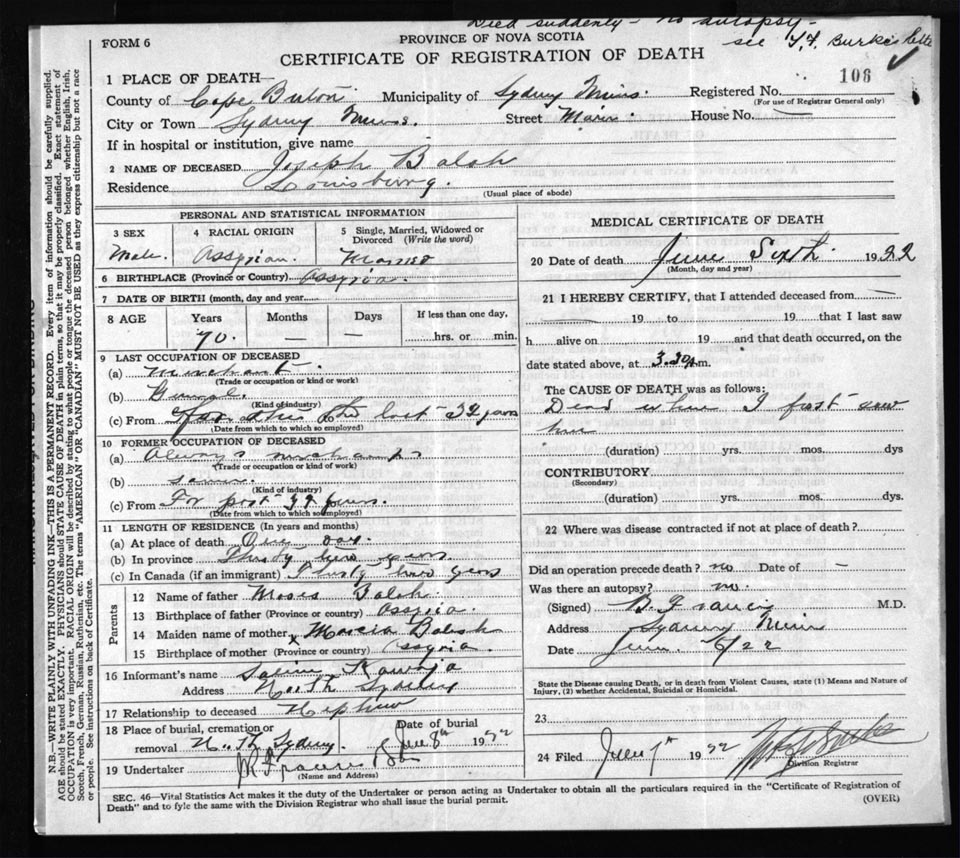 Died suddenly - no autopsy -
see
FORM 6
PROVINCE OF NOVA SCOTIA
CERTIFICATE OF REGISTRATION OF DEATH
106
1 PLACE OF DEATH—
County of Cape Breton Municipality of Sydney Mines. Registered No.
(For use of Registrar General only)
City or Town Sydney Mines Street Main. House No. —
If in hospital or institution, give name
2 NAME OF DECEASED Joseph Balsh
Residence Louisburg.
(Usual place of abode)
PERSONAL AND STATISTICAL INFORMATION
3 SEX
Male.
4 RACIAL ORIGIN
Assyrian.
5 Single, Married, Widowed or Divorced (Write the word)
6 BIRTHPLACE (Province or Country) Assyria.
7 DATE OF BIRTH (month, day and year)
8 AGE Years Months Days If less than one day,
70. — — hrs. or min.
9 LAST OCCUPATION OF DECEASED
(a) Merchant
(Trade or occupation or kind of work)
(b)
(Kind of industry)
(c) From for this the last 32 years
(Date from which to which so employed)
10 FORMER OCCUPATION OF DECEASED
(a) Always merchant
(Trade or occupation or kind of work)
(b) same.
(Kind of industry)
(c) From For past 32 years.
(Date from which to which so employed)
11 LENGTH OF RESIDENCE (In years and months)
(a) At place of death One day.
(b) In province Thirty two years.
(c) In Canada (if an immigrant) Thirty two years
Parents
12 Name of father Moses Balsh.
13 Birthplace of father (Province or country) Assyria.
14 Maiden name of mother x Balsh
15 Birthplace of mother (Province or country) Assyria.
16 Informant's name Salim
Address North Sydney
17 Relationship to deceased Nephew
18 Place of burial, cremation or removal N. Sydney. Date of burial June 8th 1922
19 Undertaker
(Name and Address)
MEDICAL CERTIFICATE OF DEATH
20 Date of death June Sixth 1922
(Month, day and year)
21 I HEREBY CERTIFY, that I attended deceased from —
— 19 to 19 that I last saw
h alive on 19 and that death occurred, on the
date stated above, at 3.30 p.m.
The CAUSE OF DEATH was as follows:
Dead when I first saw
him
(duration) yrs. mos. days
CONTRIBUTORY
(Secondary)
(duration) yrs. mos. dys.
22 Where was disease contracted if not at place of death?
Did an operation precede death? no Date of —
Was there an autopsy? no.
(Signed) B. Francis M.D.
Address Sydney Mines
Date June 6/22
State the Disease causing Death, or in death from Violent Causes, state (1) Means and Nature of Injury, (2) whether Accidental, Suicidal or Homicidal.
23
24 Filed 1922
Division Registrar
SEC. 46—Vital Statistics Act makes it the duty of the Undertaker or person acting as Undertaker to obtain all the particulars required in the "Certificate of Registration of
Death" and to fyle the same with the Division Registrar who shall issue the burial permit.
(OVER)
N.B.—WRITE PLAINLY WITH UNFADING INK—THIS IS A PERMANENT RECORD. Every item of information should be carefully supplied.
AGE should be stated EXACTLY. PHYSICIANS should STATE CAUSE OF DEATH in plain terms, so that it may be properly classified. Exact statement of
OCCUPATION is very important. RACIAL ORIGIN will be described by stating to what people or tongue the deceased person belonged whether English, Irish,
Scotch, French, German, Russian, Ruthenian, etc. The terms "AMERICAN" OR "CANADIAN" MUST NOT BE USED as they express citizenship but not a race
or people. See instructions on back of Certificate.